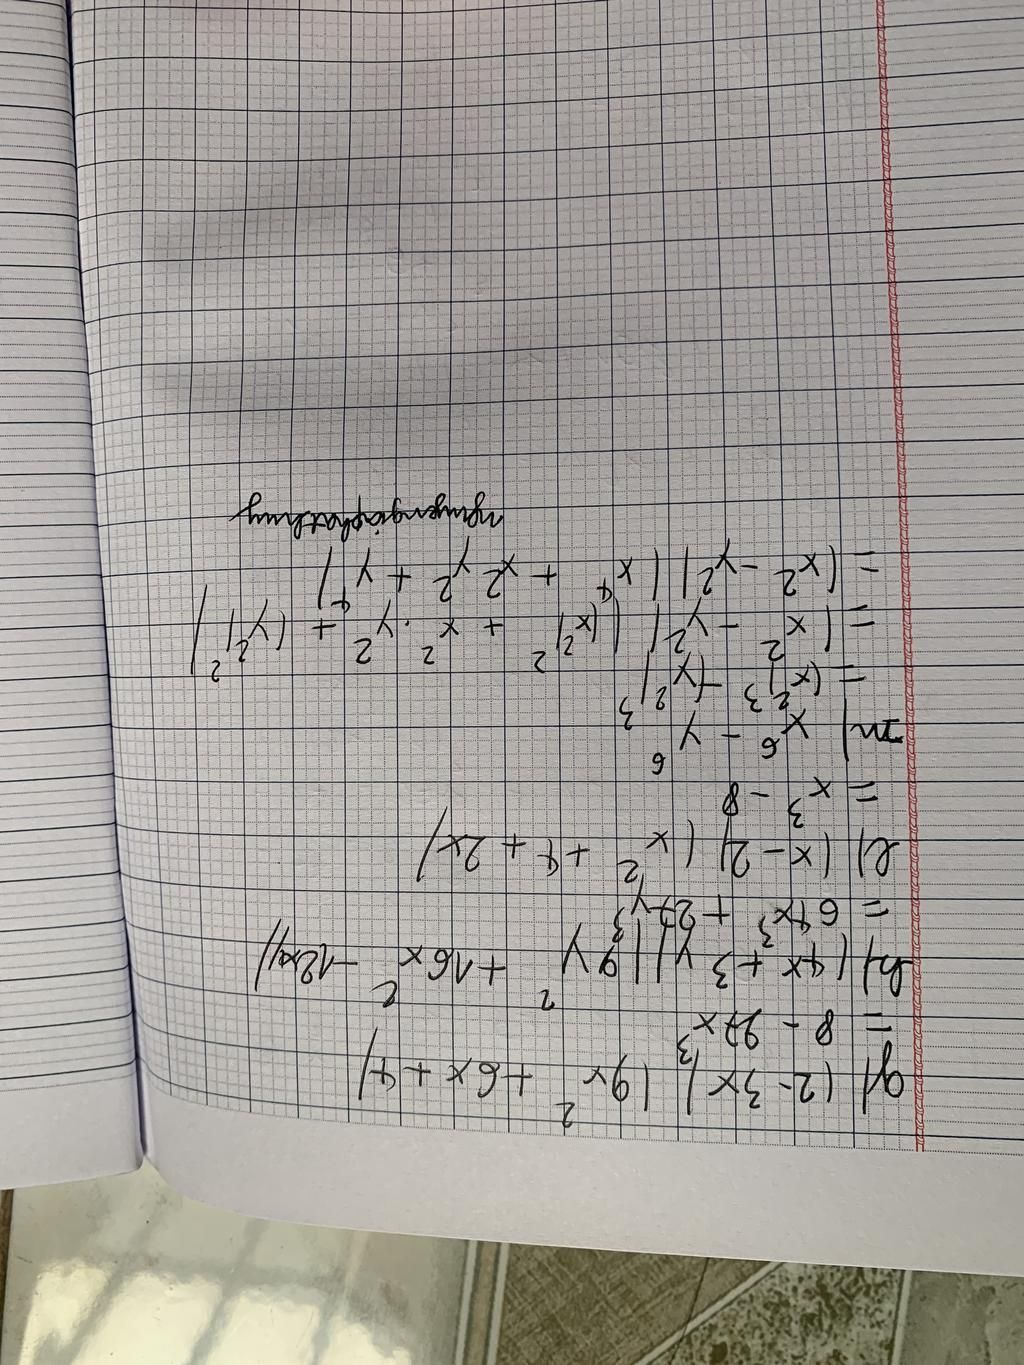 g) (2-3x) (9x² +6x+4)
= 8 - 27x³
h) (4x+3y)(9y² +16x² -12xy)
= 64x³ + 27y³
l) (x-2) (x² +4+2x)
= x³ - 8
m) x⁶ - y⁶
= (x²)³ - (y²)³
= (x² - y²) ((x²)² + x².y² + (y²)²)
= (x² - y²) (x⁴ + x²y² + y⁴)
nguyengiaphathuy